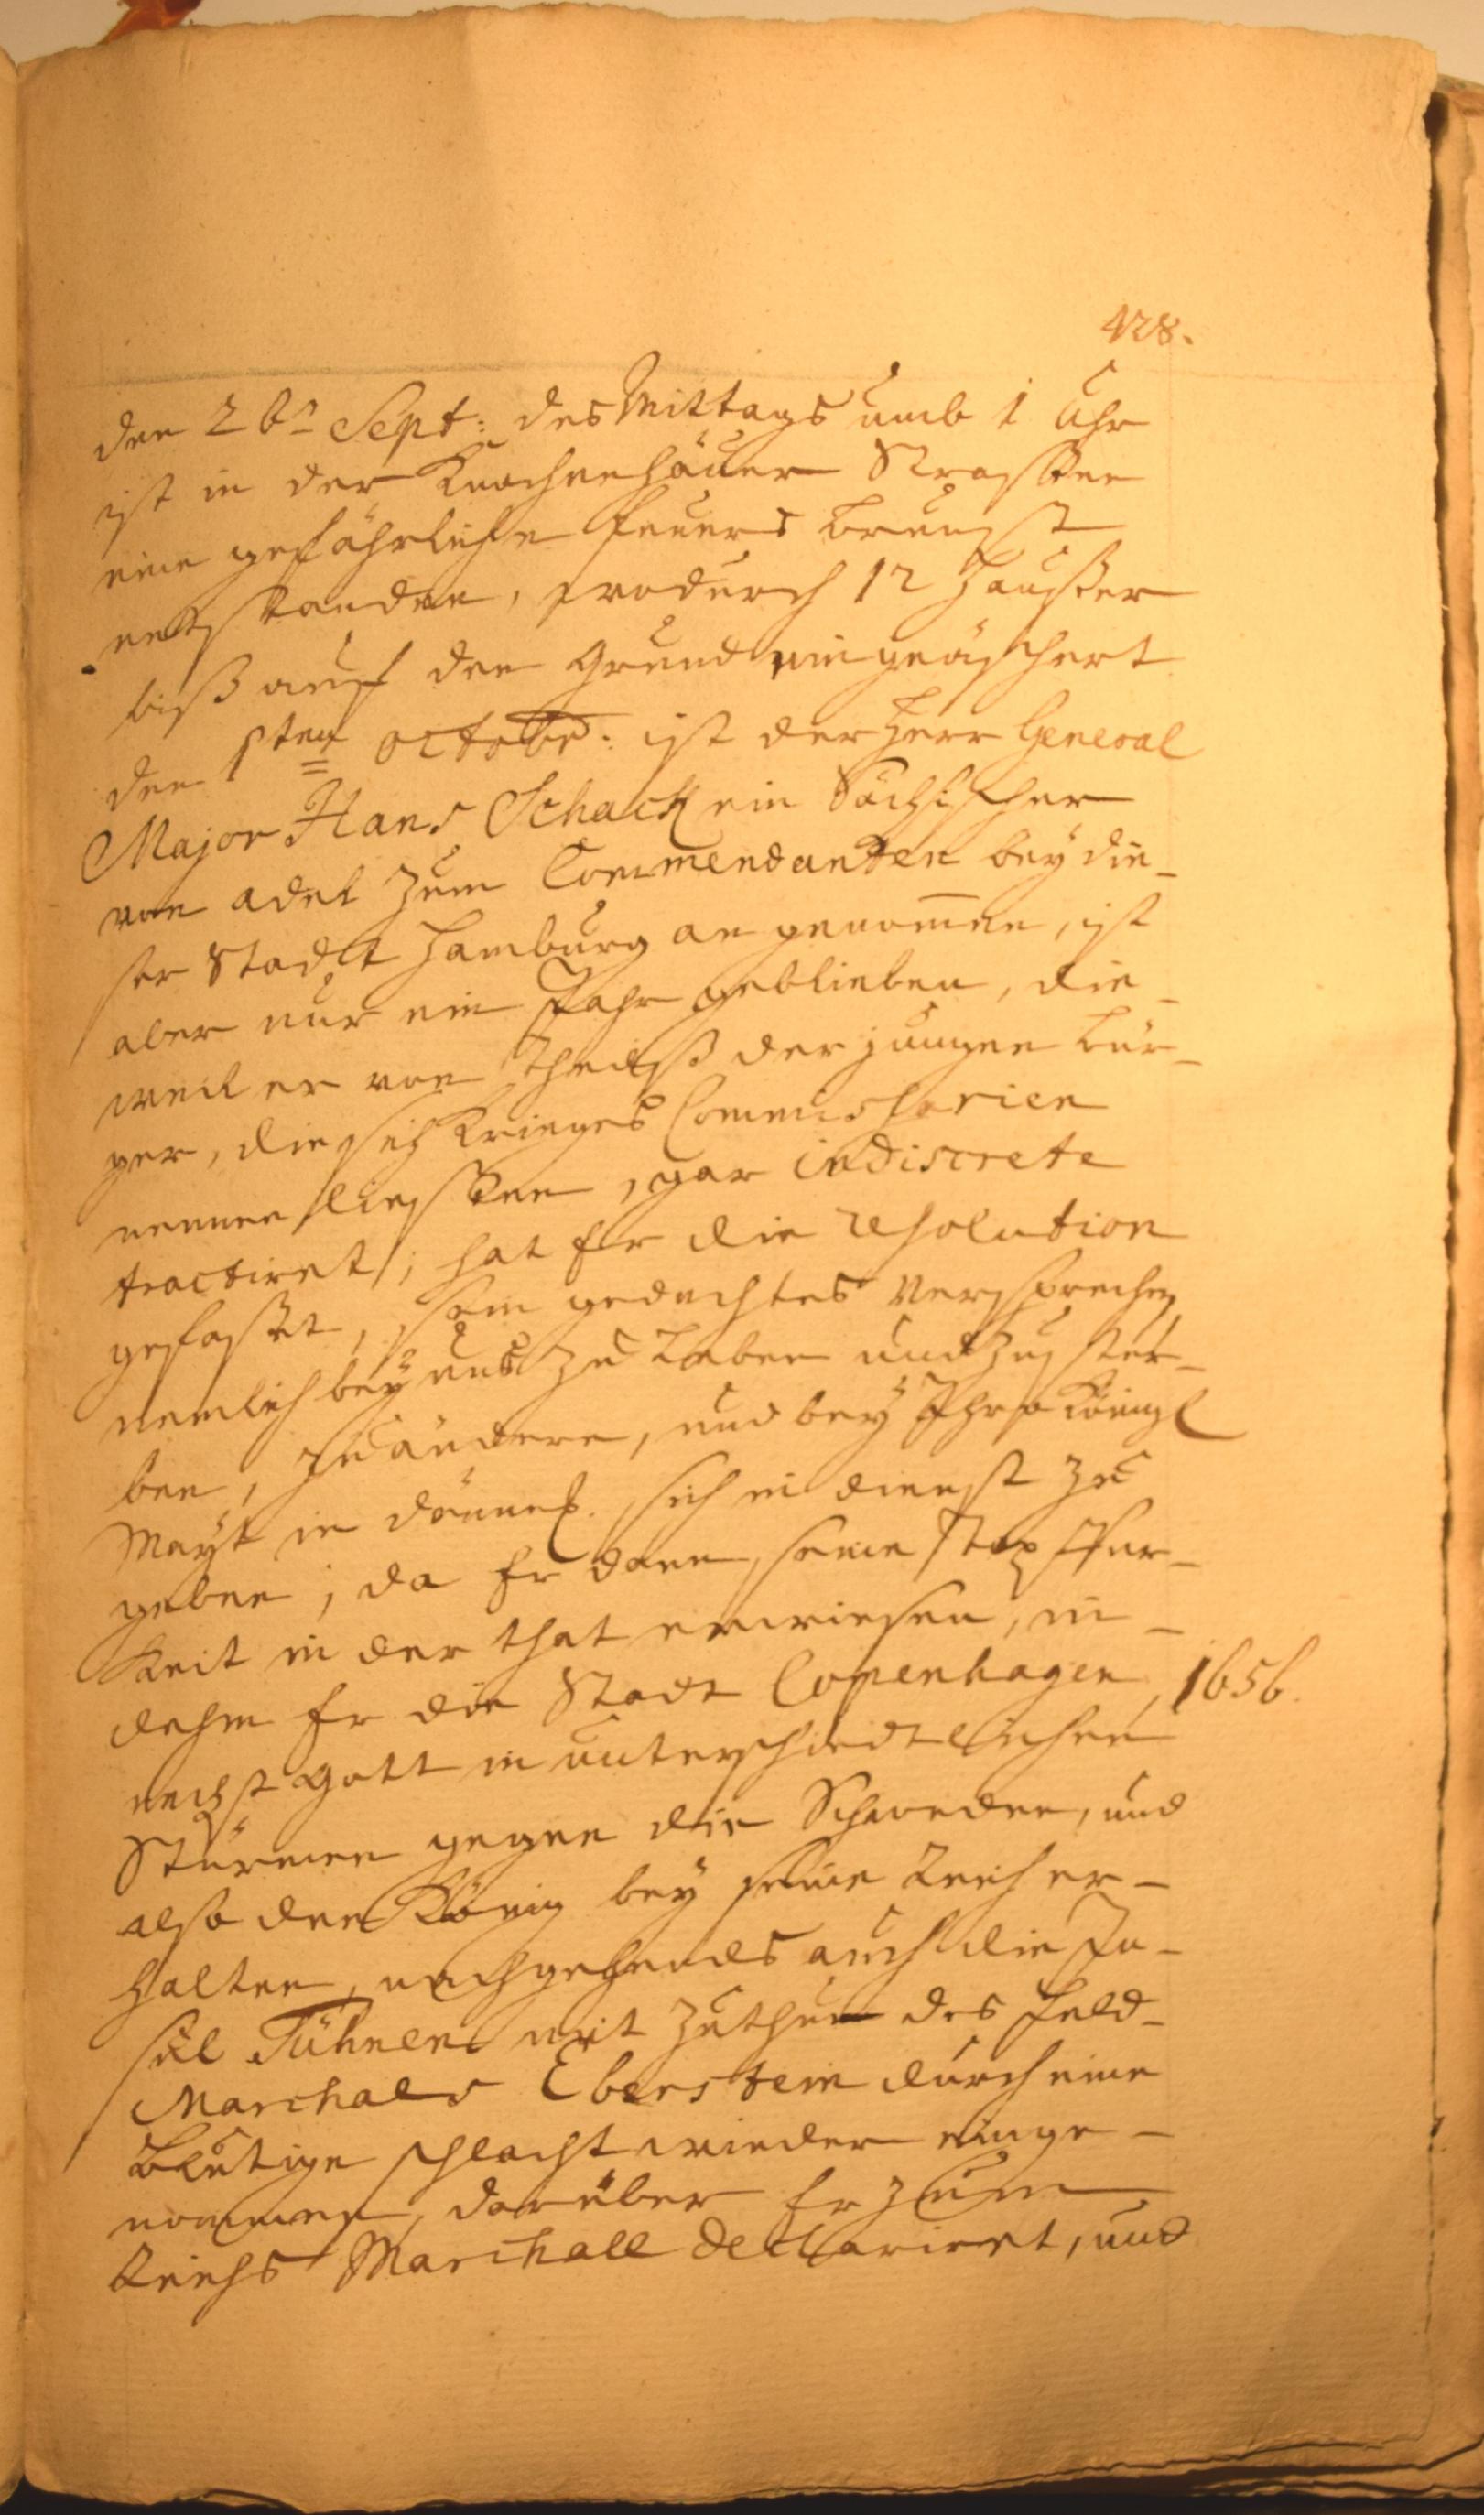 428.
den 26t Sept: des Mittags umb 1 Uhr
ist in der Knochenhäuer Strassen
eine gefährliche Feuers Brunst
entstanden, wodurch 12 Häusser
biß auf den Grund eingeäschert
den 1sten octobr: ist der Herr General
Major Hans Schack ein Sächsischer
von adel zum Commendanten bey die-
ser Stadt Hamburg an genom̅en, ist
aber nur ein Jahr geblieben, die-
weil er von theilß der jungen Bür-
ger, die sich Krieges Commissarien
nennen liessen, gar indiscrete
tractiret; hat Er die resolution
gefasset, sein gedachtes Versprechen
nemlich bey uns zu Leben und zu ster-
ben, zu ändern, und bey Ihro Königl
Mayt in Dännem. sich in dienst zu
geben; da Er dann seine Tapffer-
keit in der that erwiesen, in-
dehm Er die Stadt Copenhagen 1656.
nechst Gott in unterschiedtlichen
Stürmen gegen die Schweden, und
also den König bey seine Reich er-
halten, nachgehends auch die In-
sul Führen mit zuthun des Feld-
Marchals Eberstein durch eine
Blutige schlacht wieder einge-
nommen, darüber Er zum
Reichs Marchall declariret, und